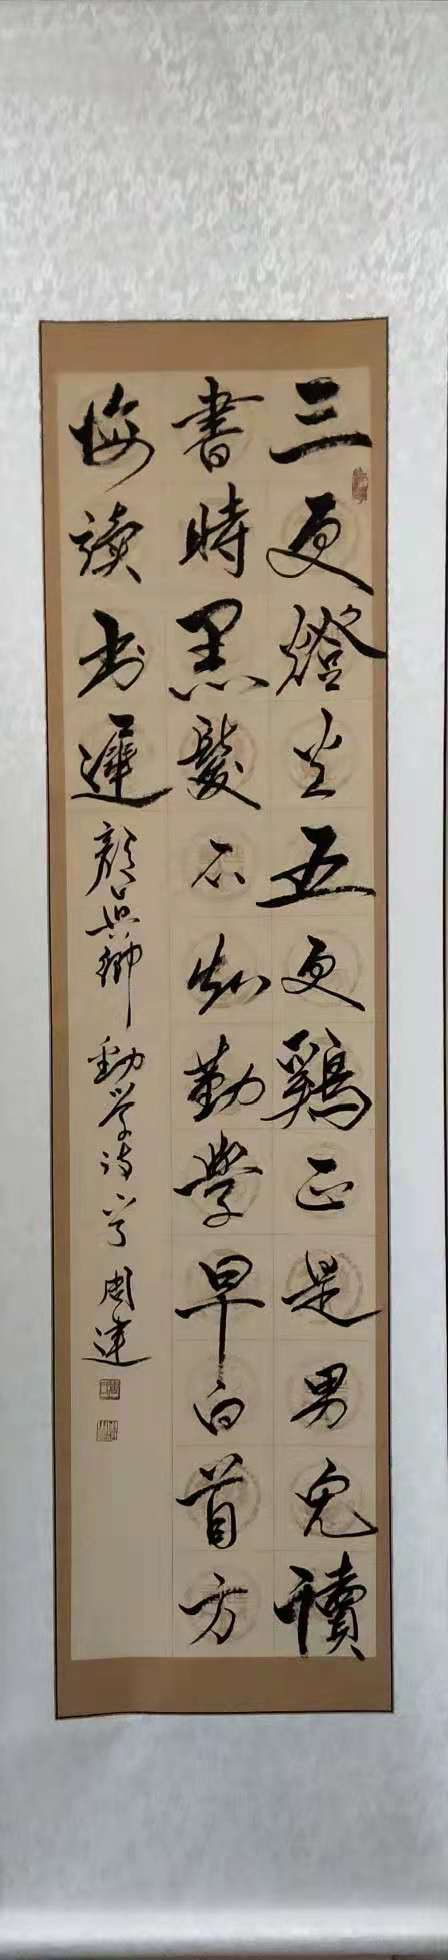 三更燈火五更鷄正是男兒讀
書時黑髮不知勤學早白首方
悔讀书遲
顏真卿勸学诗一首 周建